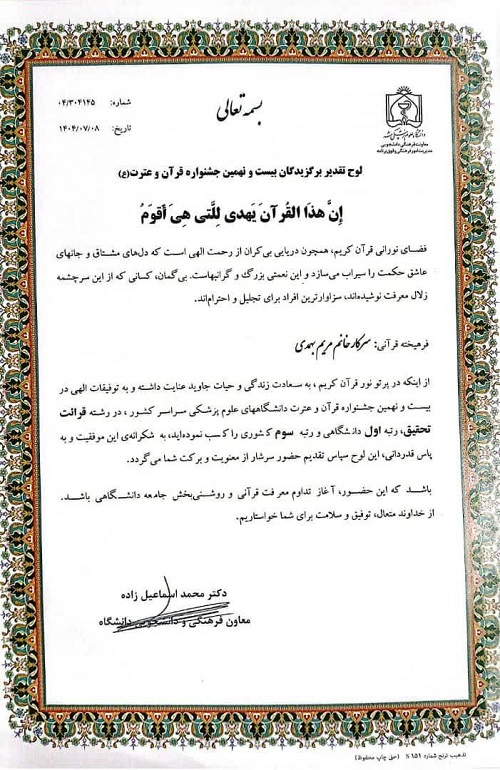 بسمه تعالی
شماره: ۰۴/۳۰۴۱۴۵
تاریخ: ۱۴۰۴/۰۷/۰۸
معاونت فرهنگی دانشجویی
مدیریت امور فرهنگی و فوق برنامه
لوح تقدیر برگزیدگان بیست و نهمین جشنواره قرآن و عترت(ع)
إِنَّ هذَا القُرآنَ یَهدی لِلَّتی هِیَ أَقوَمُ
فضای نورانی قرآن کریم، همچون دریایی بی‌کران از رحمت الهی است که دل‌های مشتاق و جانهای
عاشق حکمت را سیراب می‌سازد و این نعمتی بزرگ و گرانبهاست. بی‌گمان، کسانی که از این سرچشمه
زلال معرفت نوشیده‌اند، سزاوارترین افراد برای تجلیل و احترام‌اند.
فرهیخته قرآنی: سرکار خانم مریم بهدی
از اینکه در پرتو نور قرآن کریم، به سعادت زندگی و حیات جاوید عنایت داشته و به توفیقات الهی در
بیست و نهمین جشنواره قرآن و عترت دانشگاههای علوم پزشکی سراسر کشور، در رشته قرائت
تحقیق، رتبه اول دانشگاهی و رتبه سوم کشوری را کسب نموده‌اید، به شکرانه‌ی این موفقیت و به
پاس قدردانی، این لوح سپاس تقدیم حضور سرشار از معنویت و برکت شما می‌گردد.
باشد که این حضور، آغاز تداوم معرفت قرآنی و روشنی‌بخش جامعه دانشگاهی باشد.
از خداوند متعال، توفیق و سلامت برای شما خواستاریم.
دکتر محمد اسماعیل زاده
معاون فرهنگی و دانشجویی دانشگاه
تذهیب ترنج شماره S ۱۵۱ (حق چاپ محفوظ)